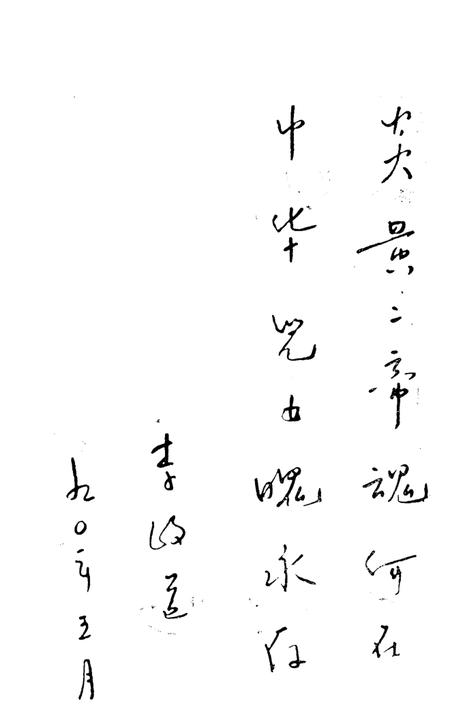 炎黄二帝魂何在
中华兒女魄永存
李政道
九〇年五月